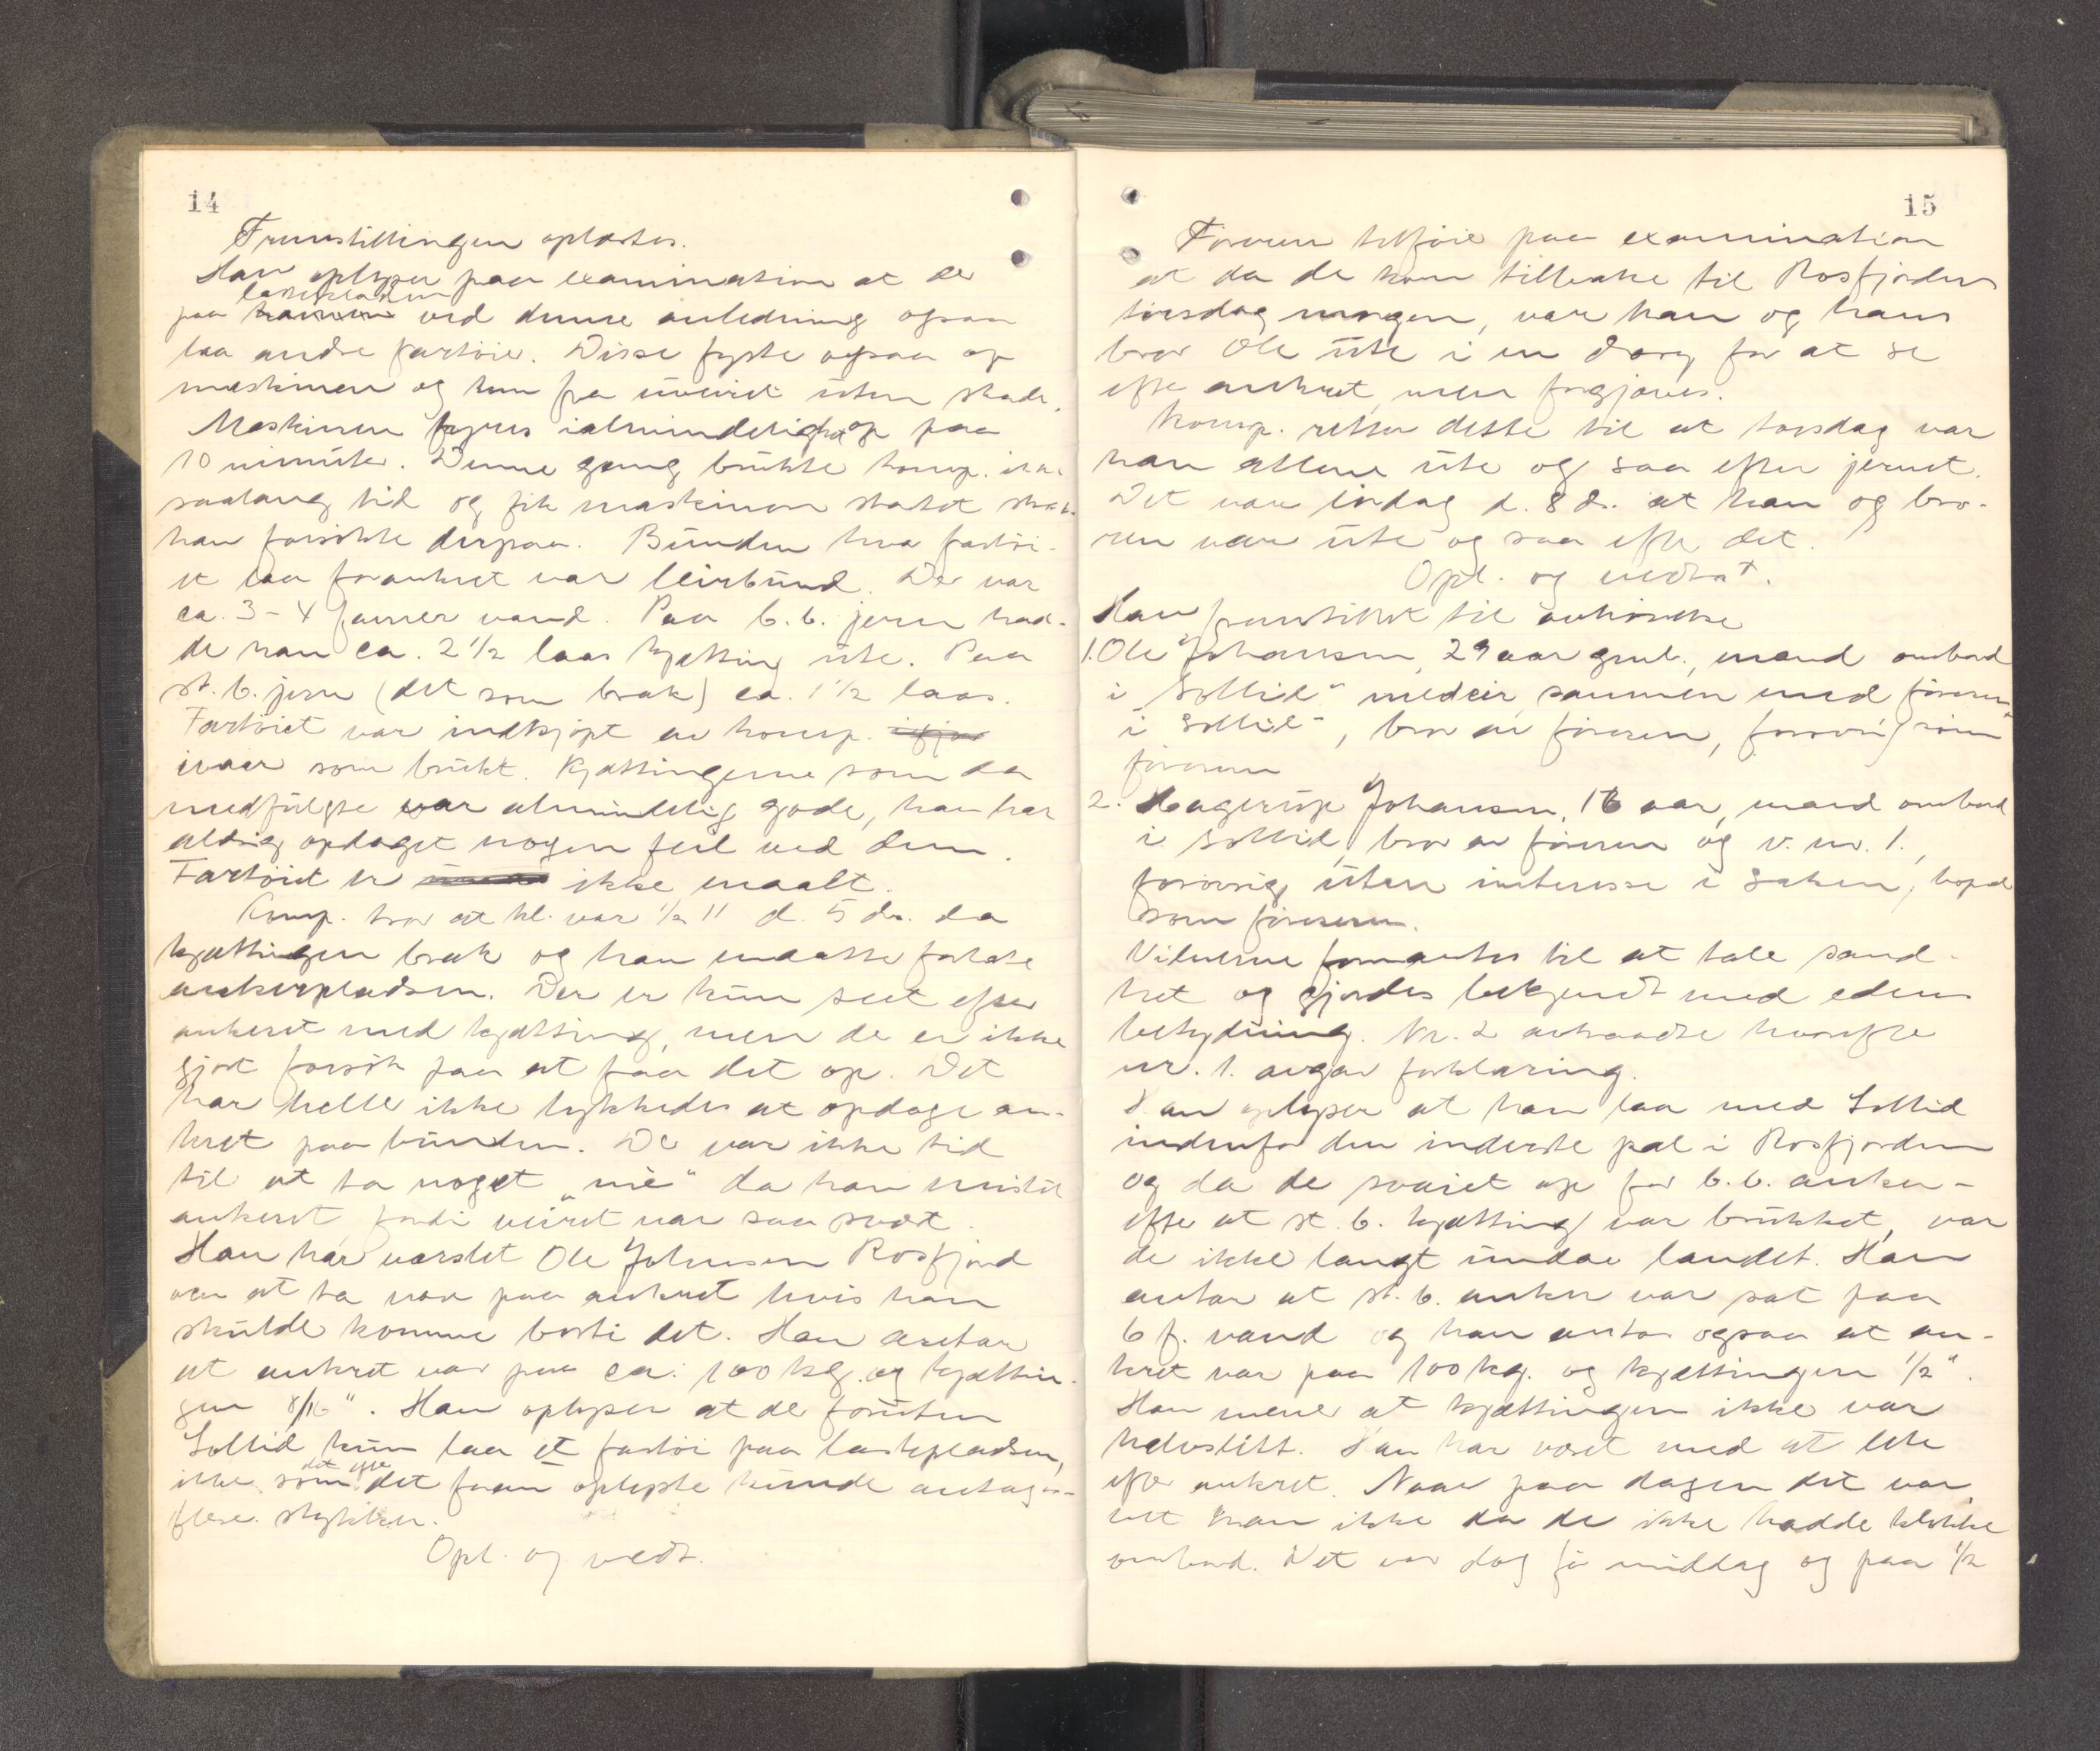 14
Fremstillingen oplæstes.
Han oplyser paa examination at der
lasteplassen
paa havnen ved denne anledning ogsaa
laa andre fartøier. Disse fyrte ogsaa op
maskinen og kom fra uveiret uten skade.
Maskinen fyres i almindelighet op paa
10 minuter. Denne gang brukte komp. ikke
saalang tid og fik maskinen startet straks
han forsøkte derpaa. Bunden hvor fartøi-
et laa forankret var leirbund. Der var
ca. 3-4 favner vand. Paa b.b. jern had-
de han ca. 2 1/2 laas kjætting ute. Paa
st.b. jern (det som brak) ca. 1 1/2 laas.
Fartøiet var indkjøpt av komp. ifjor
ivaar som brukt. Kjættingerne som da
medfulgte var almindelig gode, han har
aldrig opdaget nogen feil ved dem.
Fartøiet er ikke maalt.
Komp. tror at kl. var 1/2 11 d. 5 ds. da
kjættingen brak og han maatte forlate
ankerpladsen. Der er kun seet efter
ankeret med kjætting, men de er ikke
gjort forsøk paa at faa det op. Det
har heller ikke lykkedes at opdage an-
kret paa bunden. Der var ikke tid
til at ta noget „mè" da han mistet
ankeret fordi veiret var saa svært.
Han har varslet Ole Johnsen Rosfjord
om at ta vare paa ankret hvis han
skulde komme borti det. Han antar
at ankret var paa ca. 100 kg. og kjættin-
gen 8/16". Han oplyser at det foruten
Sollid kun laa et fartøi paa lasteplassen,
ikke som det efter det foran oplyste kunde antages
flere stykker.
Opl. og vedt.
15
Føreren tilføier paa examination
at da de kom tilbake til Rosfjorden
torsdag morgen, var han og hans
bror Ole ute i en dory for at se
efter ankret, men forgjæves.
Komp. retter dette til at torsdag var
han allene ute og saa efter jernet.
Det var lørdag d. 8 ds. at han og bro-
ren var ute og saa efter det.
Opl. og vedtat.
Han fremstillet til avhørelse
1. Ole Johansen, 29 aar gml., mand ombord
i „Sollid" medeier sammen med føreren
i „Sollid", bror av føreren, forøvrig som
føreren
2. Hagerup Johansen, 16 aar, mand ombord
i Sollid, bror av føreren og v. nr. 1.,
forøvrig uten interesse i saken, bopæl
som føreren.
Vitnerne formantes til at tale sand-
het og gjordes bekjendt med edens
betydning. Nr. 2 avtraadte hvorefter
nr. 1. avgav forklaring.
Han oplyser at han laa med Sollid
indenfor den inderste pæl i Rosfjorden
og da de svaiet op for b.b. anker -
efter at st.b. kjætting var brukket, var
de ikke langt undav landet. Han
antar at st.b. anker var sat paa
6 f. vand og han antar ogsaa at an-
kret var paa 100 kg. og kjættingen 1/2".
Han mener at kjættingen ikke var
halvslitt. Han har været med at lete
efter ankret. Naar paa dagen det var
vet han ikke da de ikke hadde klokke
ombord. Det var dog før middag og paa 1/2